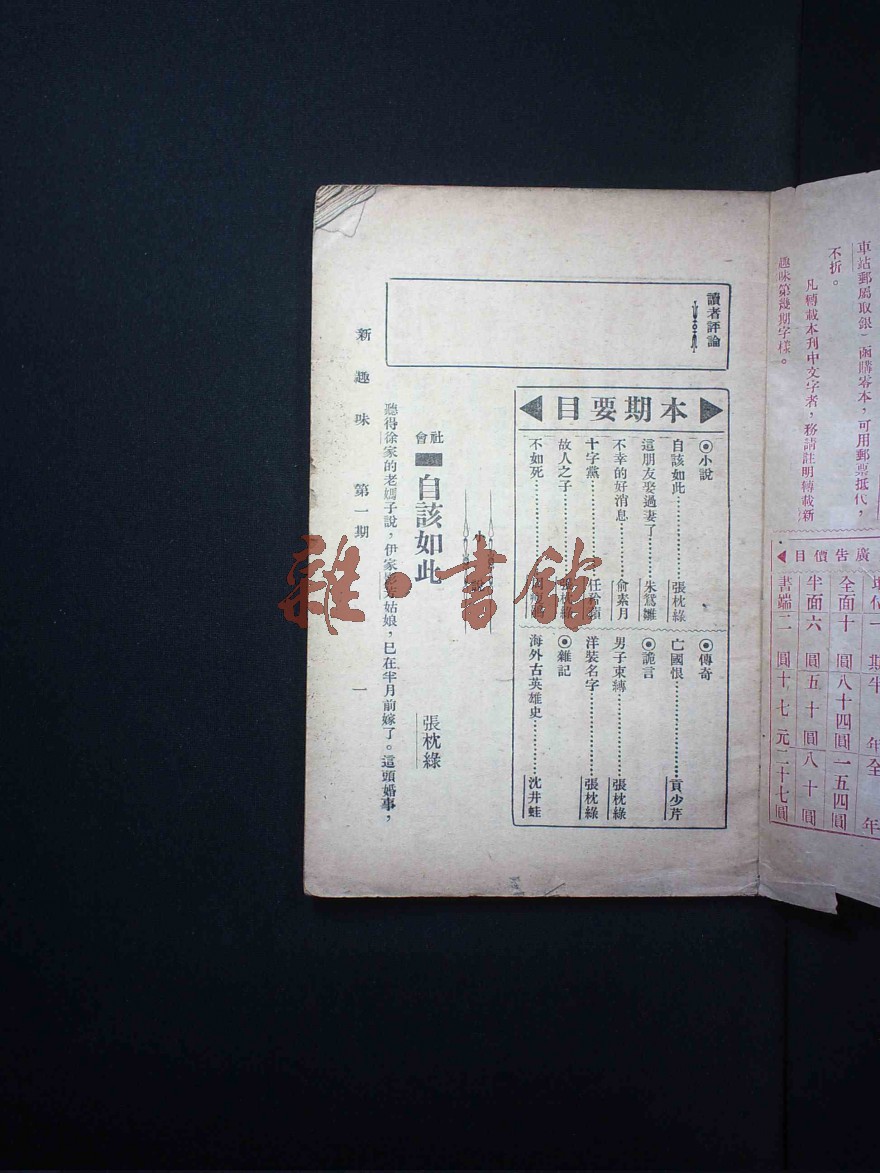 車站郵局取銀，函購零本，可用郵票抵代，
不折。
凡轉載本刊中文字者，務請註明轉載新
趣味第幾期字樣。
廣告價目
全面十圓八十四圓一五四圓
半面六圓五十圓八十圓
書端二圓十七元二十七圓
讀者評論
本期要目
◉小說
自該如此⋯⋯張枕綠
這朋友娶過妻了⋯⋯朱鴛雛
不幸的好消息⋯⋯俞素月
十字黨⋯⋯任
故人之子⋯⋯
不如死⋯⋯
◉傳奇
亡國恨⋯⋯貢少芹
◉詭言
男子束縛⋯⋯張枕綠
洋裝名字⋯⋯張枕綠
◉雜記
海外古英雄史⋯⋯沈井蛙
社會
自該如此
張枕綠
聽得徐家的老媽子說，伊家姑娘，已在半月前嫁了。這頭婚事，
新趣味 第一期
一
雜·書館